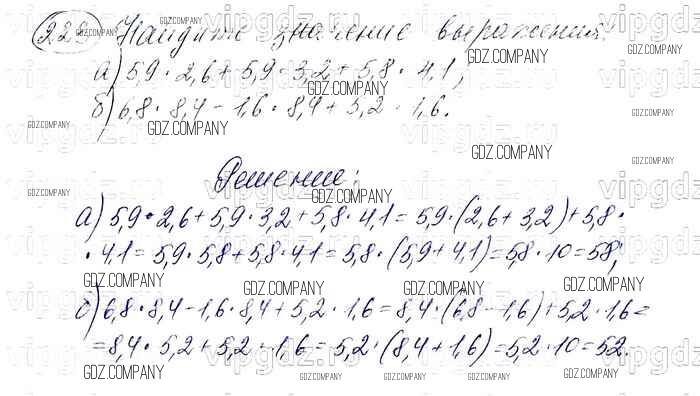 229 Найдите значение выражения:
а) 5,9 · 2,6 + 5,9 · 3,2 + 5,8 · 4,1;
б) 6,8 · 8,4 - 1,6 · 8,4 + 5,2 · 1,6.
Решение:
а) 5,9 · 2,6 + 5,9 · 3,2 + 5,8 · 4,1 = 5,9 · (2,6 + 3,2) + 5,8 ·
· 4,1 = 5,9 · 5,8 + 5,8 · 4,1 = 5,8 · (5,9 + 4,1) = 5,8 · 10 = 58;
б) 6,8 · 8,4 - 1,6 · 8,4 + 5,2 · 1,6 = 8,4 · (6,8 - 1,6) + 5,2 · 1,6 =
= 8,4 · 5,2 + 5,2 · 1,6 = 5,2 · (8,4 + 1,6) = 5,2 · 10 = 52.
GDZ.COMPANY
vipgdz.ru